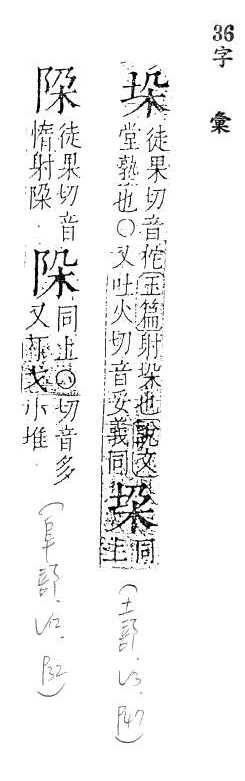 36
字彙
垛 徒果切音佗玉篇射垛也說文
堂塾也○又吐火切音妥義同 垜 同
上
(土部. V3. P47)
徒果切音
惰射 同上○ 切音多
又 小堆
(阜部. V12. P32)